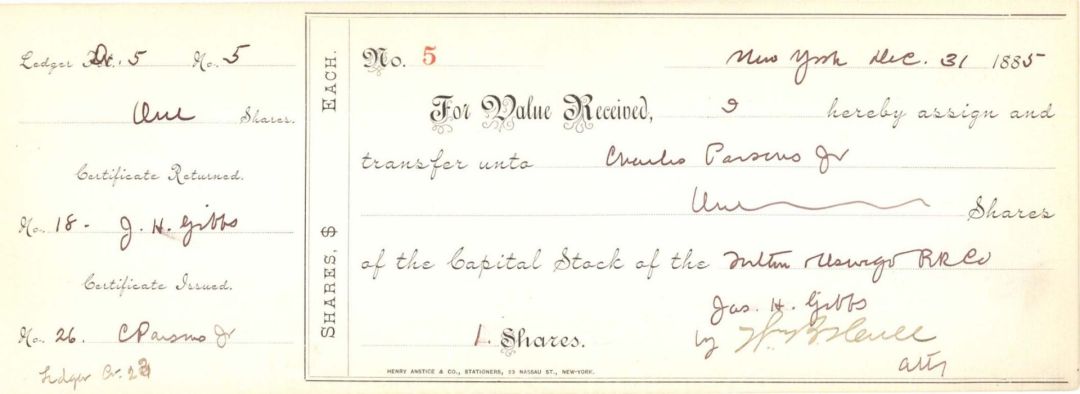 Ledger Dr. 5 No. 5
One Shares.
Certificate Returned.
No. 18 - J. H. Gibbs
Certificate Issued.
No. 26. C Parsons Jr
Ledger Cr. 23
SHARES, $ EACH.
No. 5 New York Dec. 31 1885
For Value Received, I hereby assign and
transfer unto Charles Parsons Jr
One Shares
of the Capital Stock of the Fulton Oswego RR Co
Jas. H. Gibbs
1. Shares. by
atty
HENRY ANSTICE & CO., STATIONERS, 23 NASSAU ST., NEW-YORK.